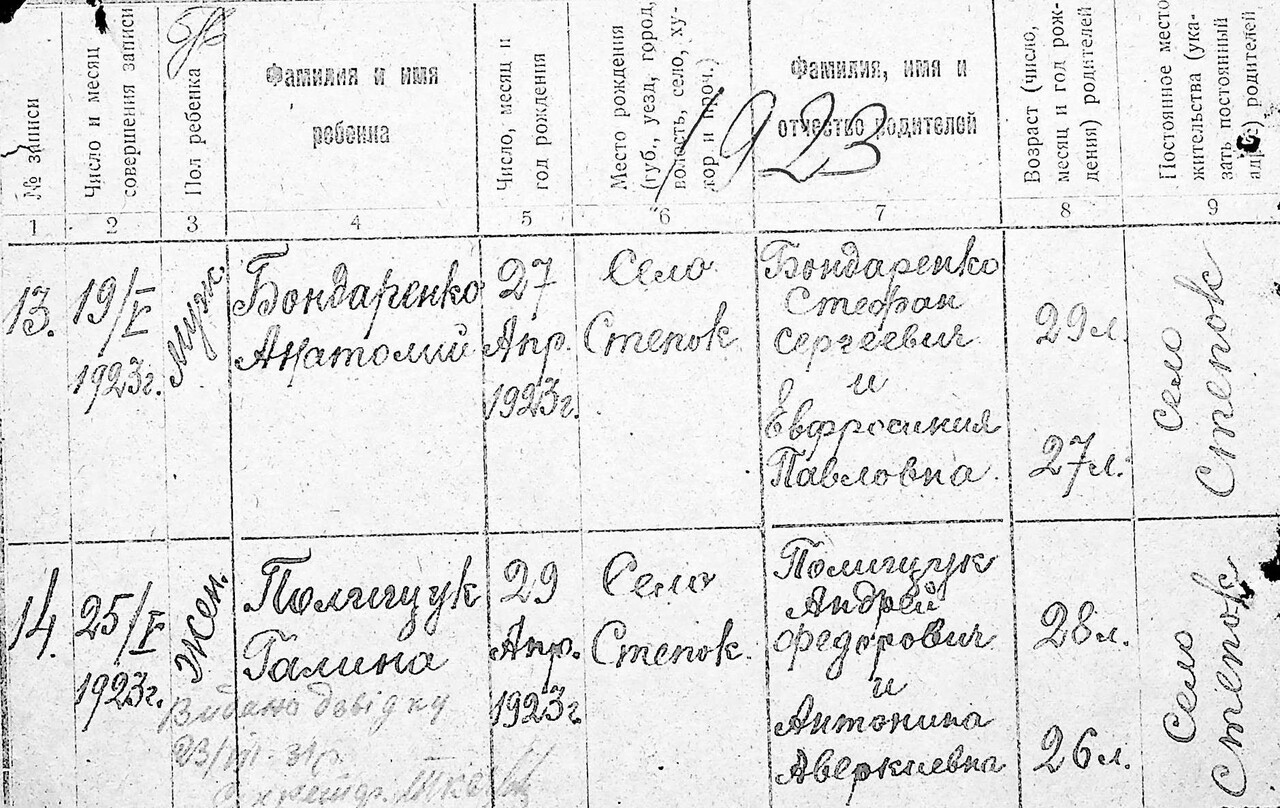 № записи
Число и месяц
совершения записи
Пол ребенка
Фамилия и имя
ребенка
Число, месяц и
год рождения
Место рождения
(губ., уезд, город,
волость, село, ху-
тор и проч.)
Фамилия, имя и
отчество родителей
Возраст (число,
месяц и год рож-
дения) родителей
Постоянное место
жительства (ука-
зать постоянный
адрес) родителей
1923
1 2 3 4 5 6 7 8 9
13.
19/V
1923г.
муж.
Бондаренко
Анатолий
27
Апр.
1923г.
Село
Степок
Бондаренко
Стефан
Сергеевич
и
Евфросиния
Павловна.
29л.
27л.
Село
Степок
14.
25/V
1923г.
Жен.
Полищук
Галина
Видано довідку
29
Апр.
1923г
Село
Степок.
Полищук
Андрей
Федорович
и
Антонина
Аверкиевна
28л.
26л.
Село
Степок